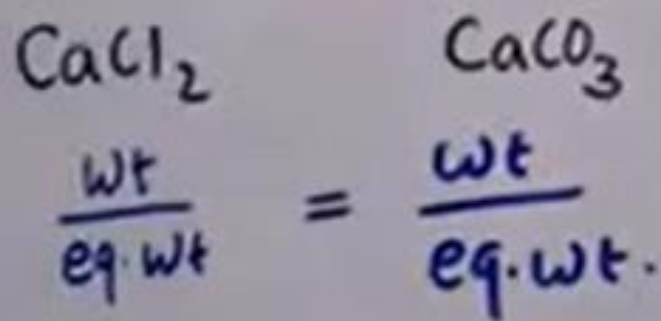 CaCl₂ CaCO₃
wt / eq. wt = wt / eq. wt.